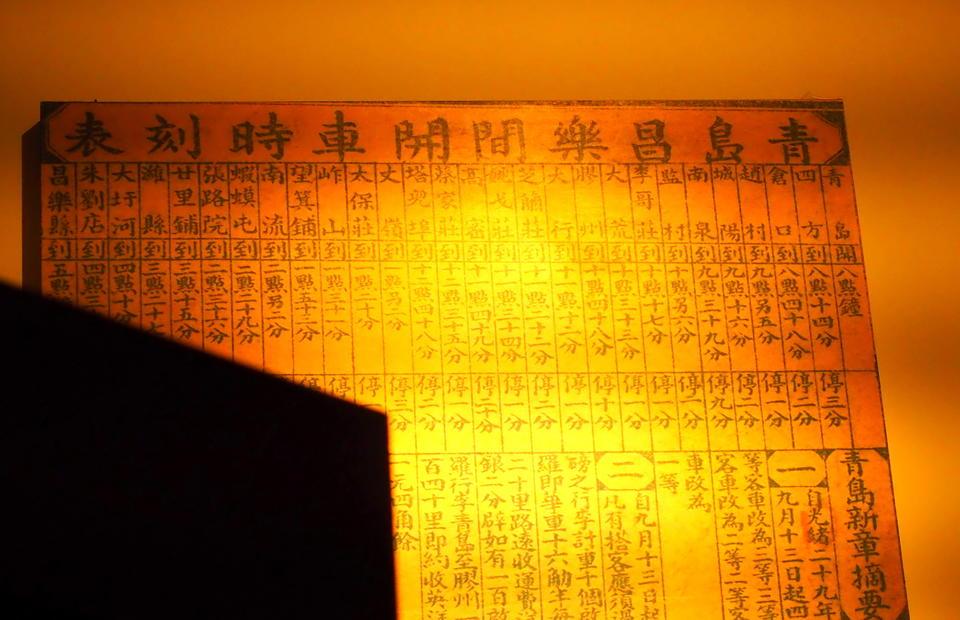 青島昌樂間開車時刻表
青島開八點鐘
四方到八點十四分停三分
倉口到八點四十八分停二分
趙村到九點另五分停一分
城陽到九點十六分停二分
南泉到九點三十九分停九分
監村到十點另八分停二分
李哥莊到十點十七分停二分
大荒到十點三十二分停一分
膠州到十點四十八分停十分
大行到十一點十二分停一分
芝蘭莊到十一點二十二分停二分
莊到十一點三十四分停一分
高密到十一點四十九分停二十分
蔡家莊到十二點三十五分停一分
塔兒埠到十二點四十八分停二分
丈嶺到一點另二分停三分
太保莊到一點二十分停
岞山到一點三十分停
望箕鋪到一點五十二分停
南流到二點另二分
蝦蟆屯到二點二十九分
張路院到二點三十六分
廿里鋪到三點十五分
濰縣到三點二十七
大圩河到四點十分
朱劉店到四點三
昌樂縣到五點
青島新章摘要
一 自光緒二十九年
九月十三日起四
等客車改為三等三等
客車改為二等二等客
車改為
一等
二 自九月十三日起
凡有搭客應須過
磅之行李計重十個啟
羅即華重十六觔半每
二十里路遠收運費洋
銀二分辟如有一百啟
羅行李青島至膠州一
百四十里即約收英洋
一元四角餘